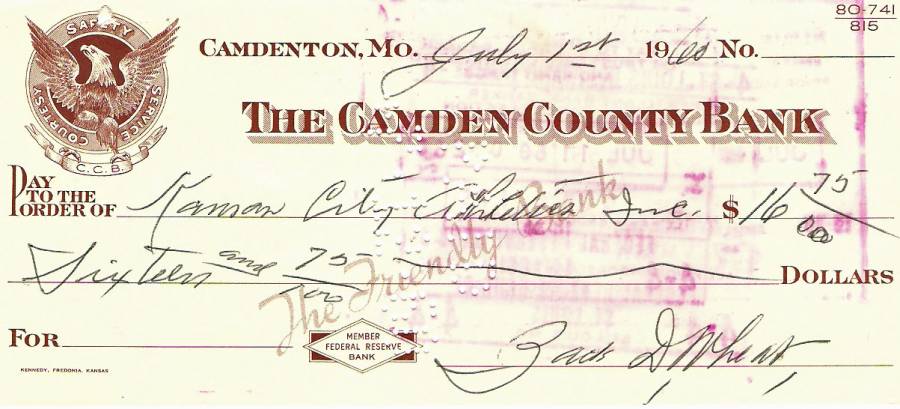 80-741
815
SAFETY
COURTESY
SERVICE
C.C.B.
CAMDENTON, MO. July 1st 1960 No.
THE CAMDEN COUNTY BANK
PAY TO THE ORDER OF Kansas City Athletics Inc. $16 75/00
Sixteen and 75/100 DOLLARS
The Friendly Bank
FOR
MEMBER
FEDERAL RESERVE
BANK
Zack D. Wheat
KENNEDY, FREDONIA, KANSAS